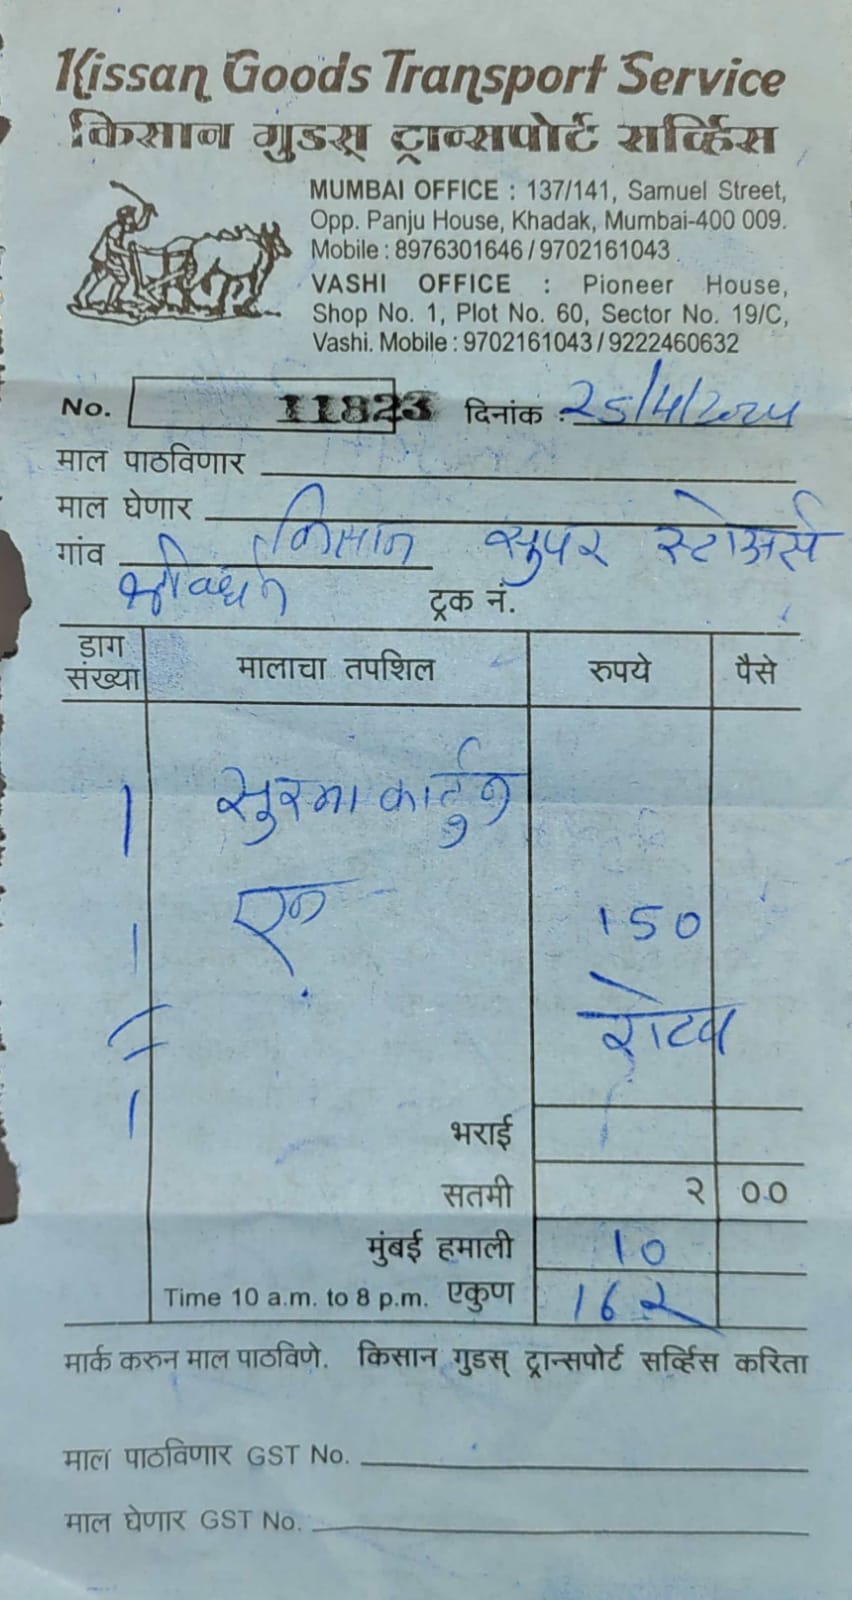 Kissan Goods Transport Service
किसान गुडस् ट्रान्सपोर्ट सर्व्हिस
MUMBAI OFFICE : 137/141, Samuel Street,
Opp. Panju House, Khadak, Mumbai-400 009.
Mobile : 8976301646 / 9702161043
VASHI OFFICE : Pioneer House,
Shop No. 1, Plot No. 60, Sector No. 19/C,
Vashi. Mobile : 9702161043 / 9222460632
No. 11823 दिनांक : 25/4/2024
माल पाठविणार
माल घेणार किसान सुपर स्टोअर्स
गांव
ट्रक नं.
डाग संख्या मालाचा तपशिल रुपये पैसे
1 सुरमा कार्टुन
1 150
1
भराई
सतमी २ 00
मुंबई हमाली 10
Time 10 a.m. to 8 p.m. एकुण 16२
मार्क करुन माल पाठविणे. किसान गुडस् ट्रान्सपोर्ट सर्व्हिस करिता
माल पाठविणार GST No.
माल घेणार GST No.